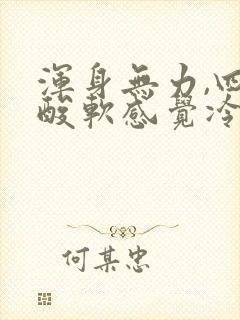 渾身無力,四
酸軟感覺冷
何某忠